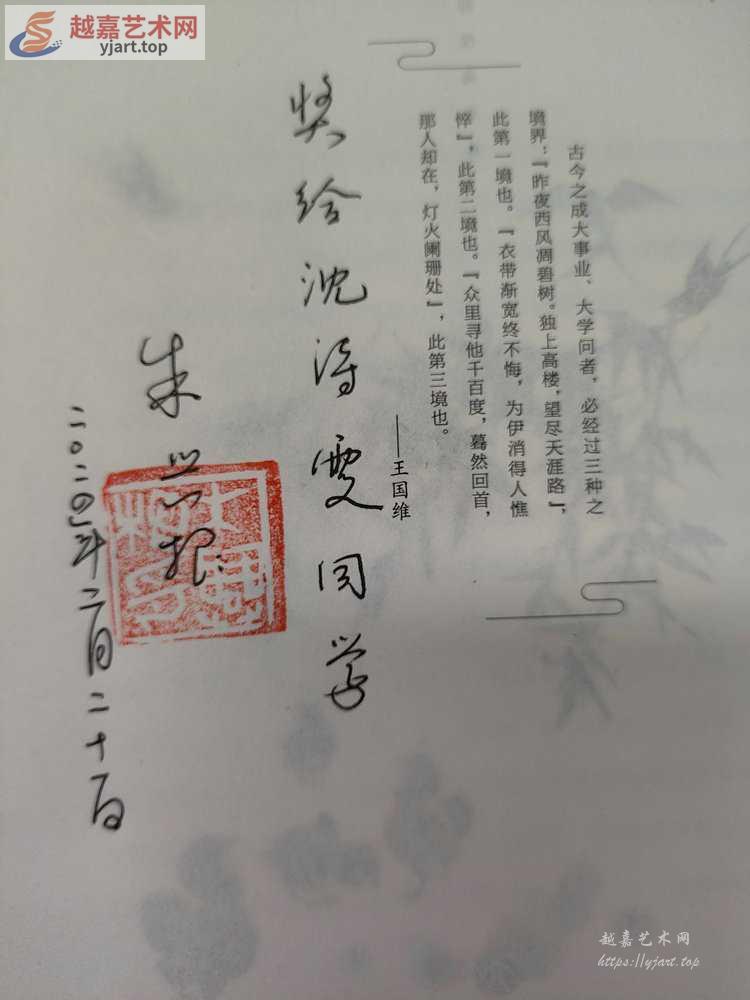 越嘉艺术网
yjart.top
古今之成大事业、大学问者，必经过三种之
境界：『昨夜西风凋碧树。独上高楼，望尽天涯路』，
此第一境也。『衣带渐宽终不悔，为伊消得人憔
悴』，此第二境也。『众里寻他千百度，蓦然回首，
那人却在，灯火阑珊处』，此第三境也。
——王国维
奖给沈得雯同学
朱兴根
二〇二四年二月二十日
越嘉艺术网
https://yjart.top